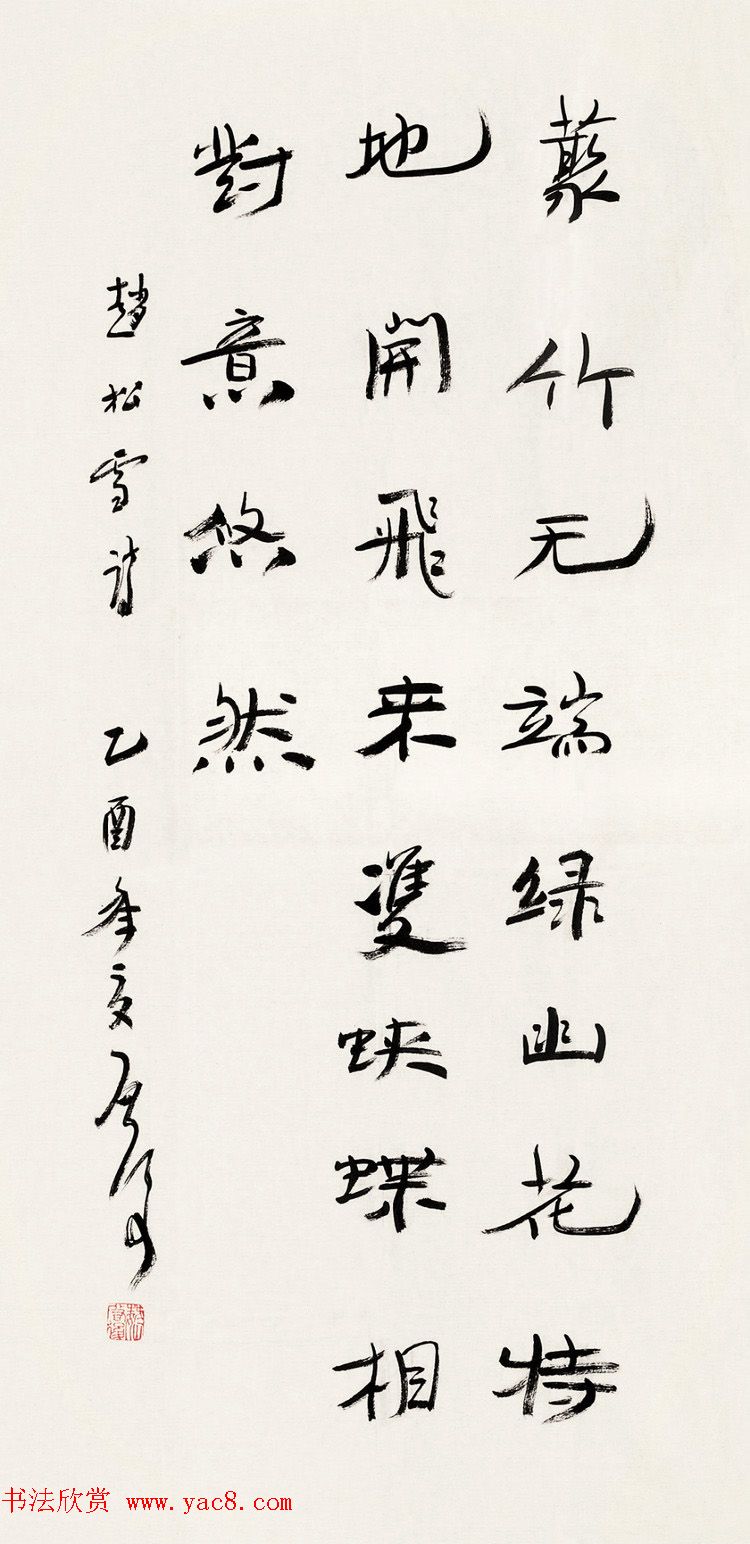 蕞竹无端绿幽花特
地開飛来雙蛱蝶相
對意悠然
趙松雪詩 乙酉年夏
书法欣赏 www.yac8.com